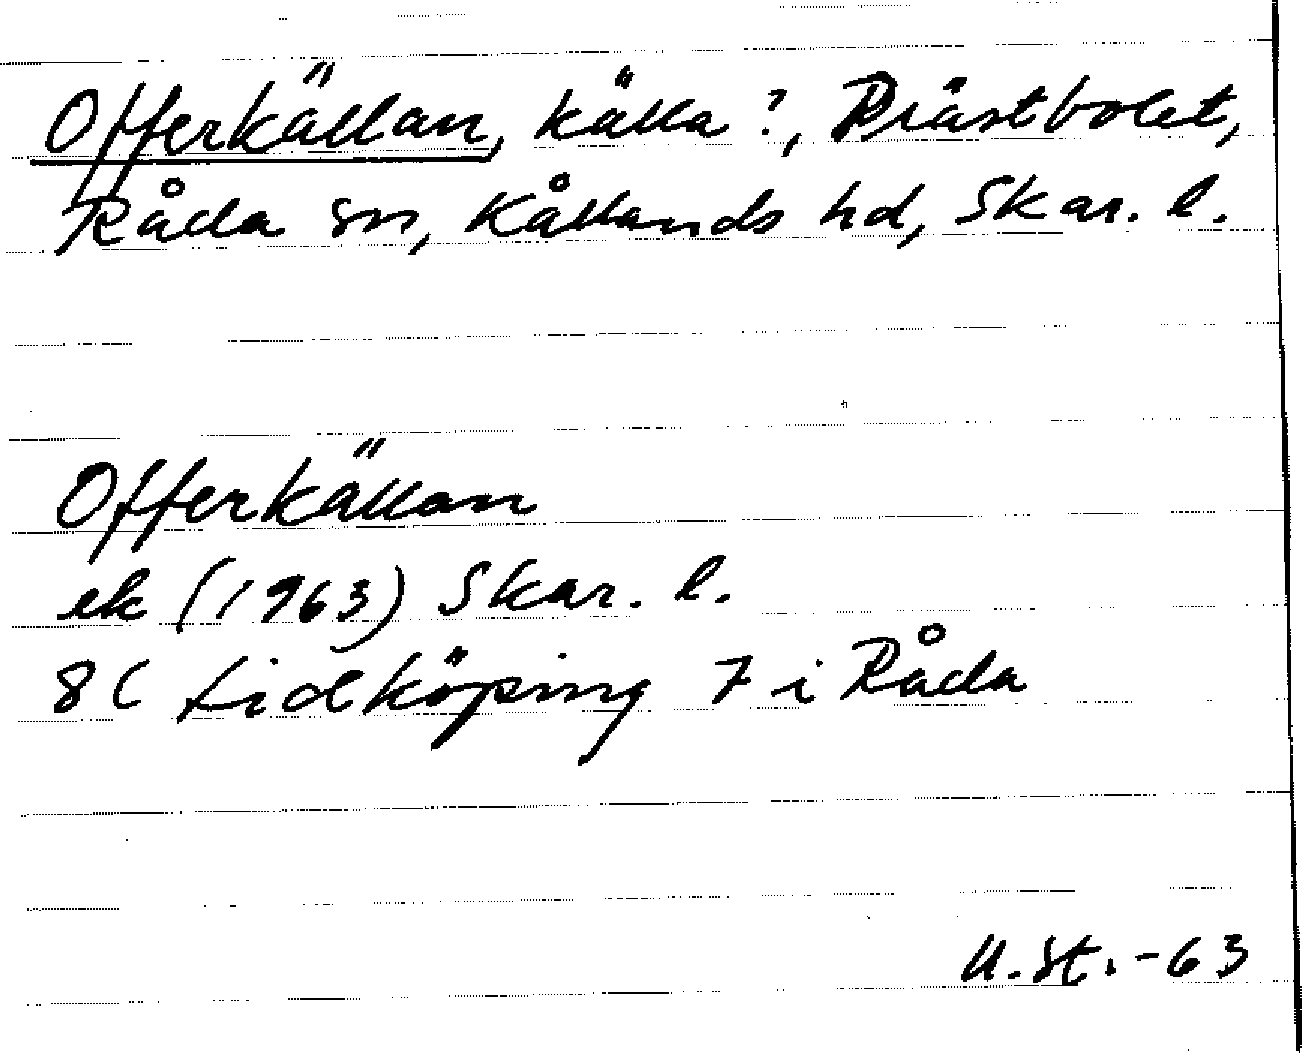 Offerkällan, källa?, Prästbolet,
Råda sn, Kållands hd, Skar. l.
Offerkällan
ek (1963) Skar. l.
8C Lidköping 7 i Råda
U.St.-63